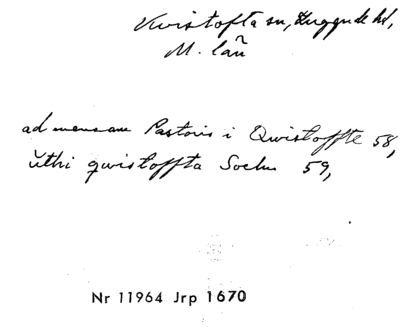 Kvistofta sn, Luggude hd,
M. län
ad mensam Pastoris i Qwistoffte 58,
uthi qwistoffta Sochn 59,
Nr 11964 Jrp 1670